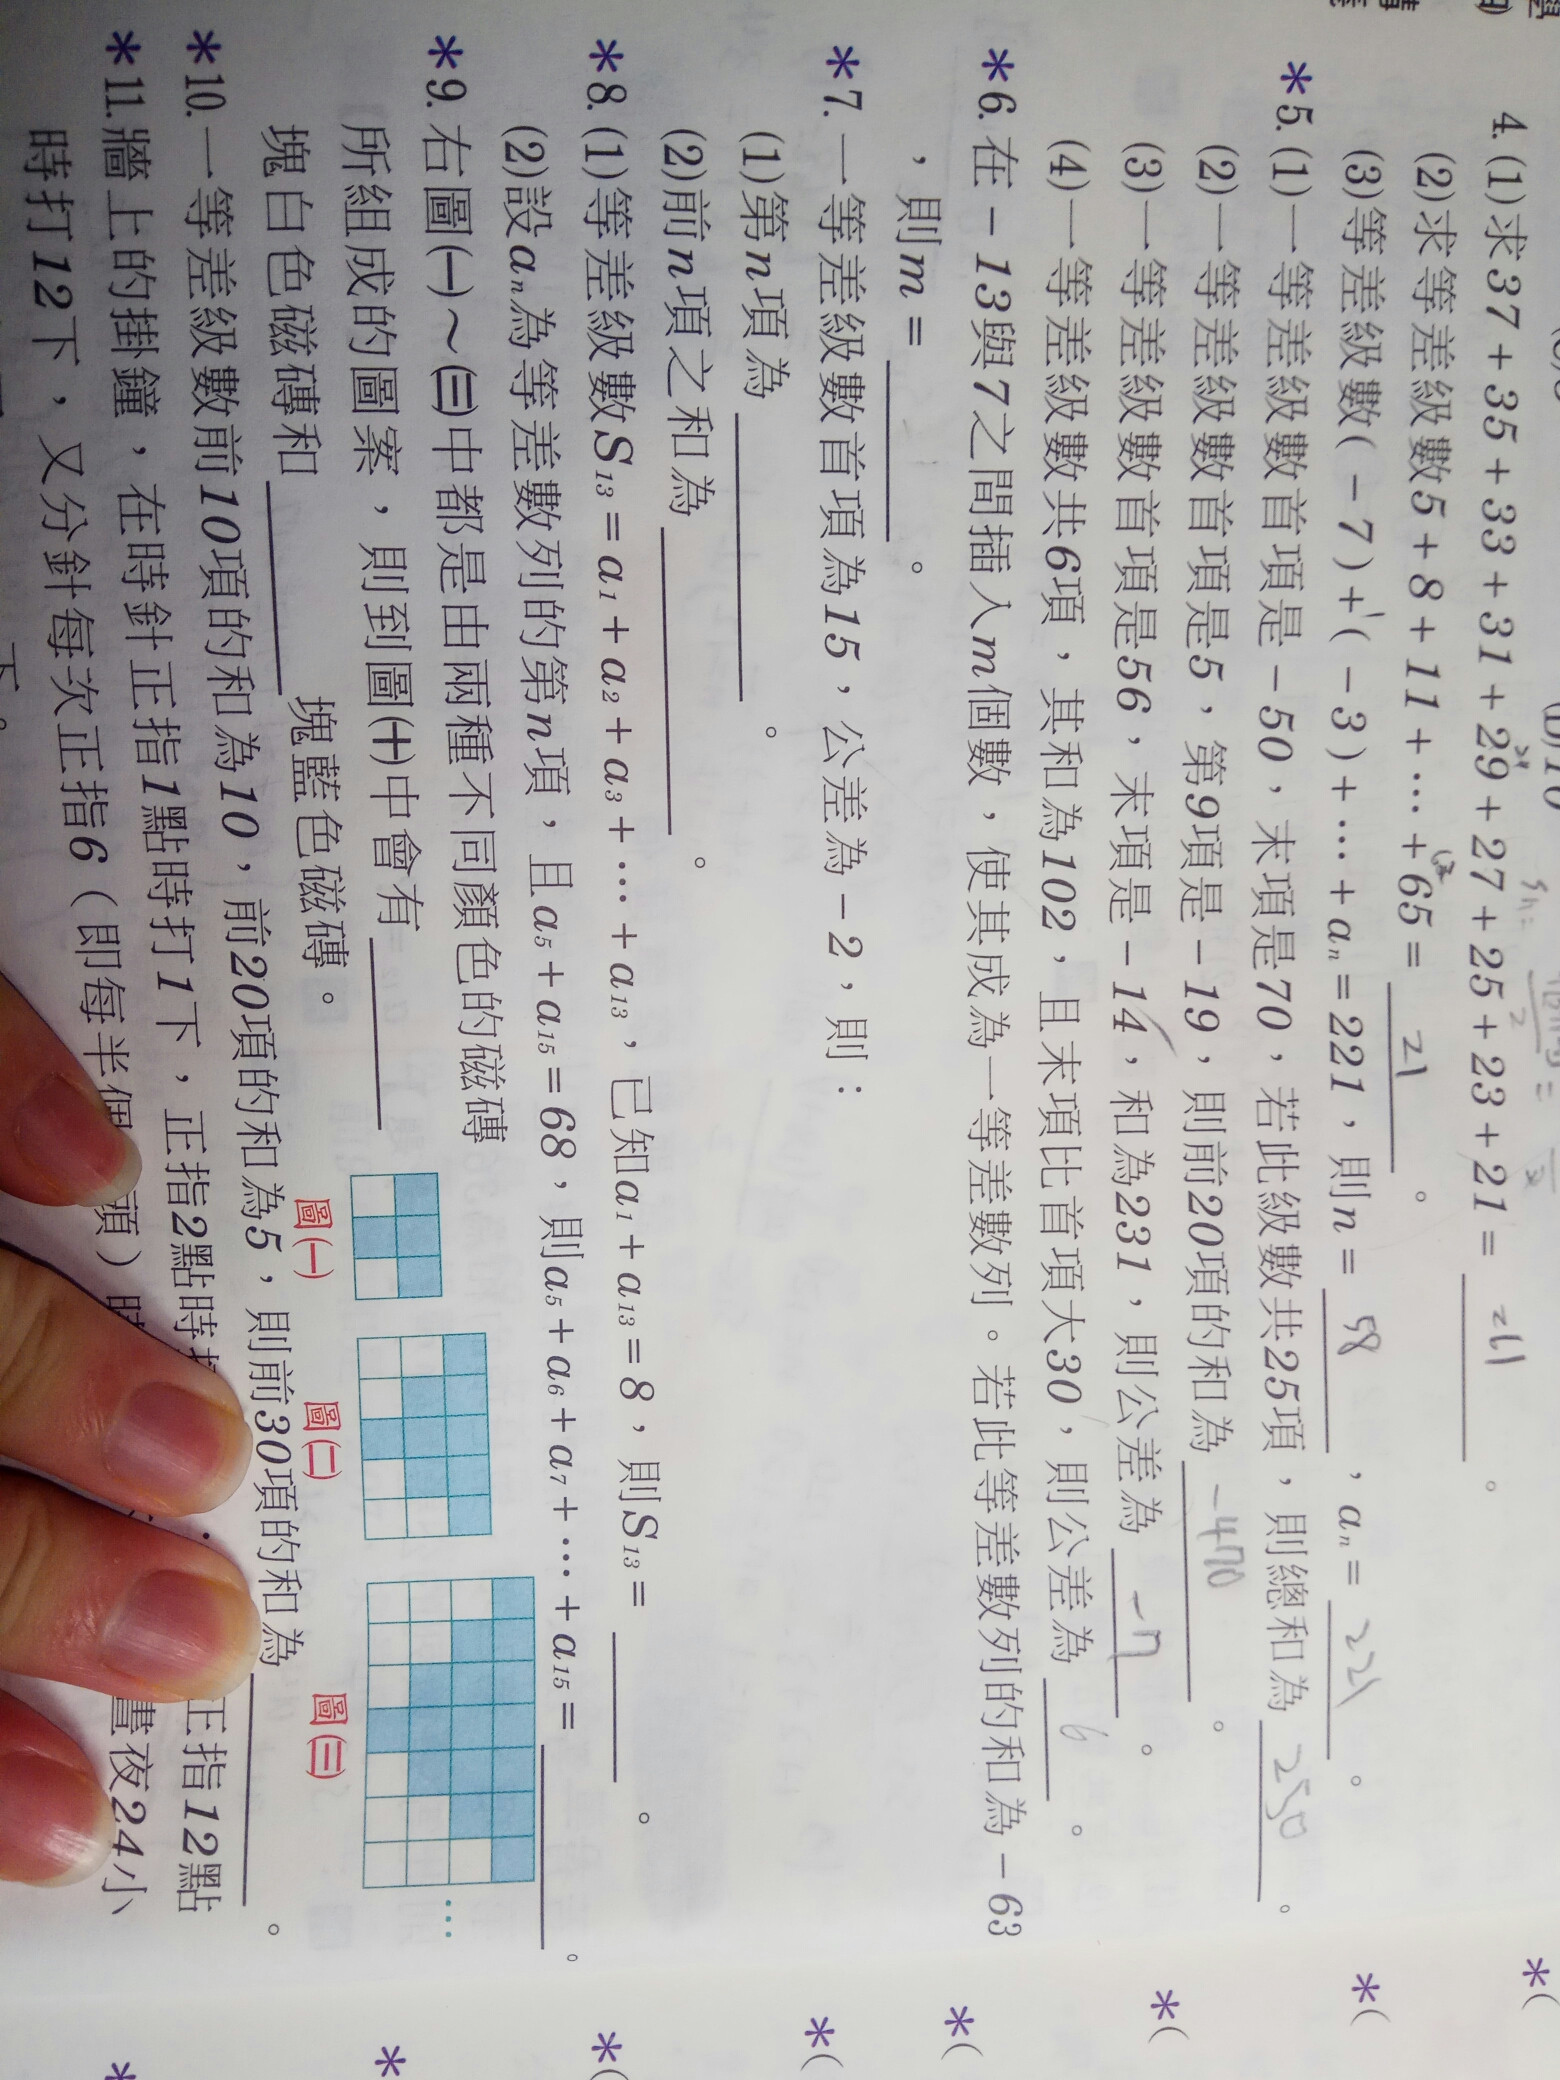 4. (1)求37+35+33+31+29+27+25+23+21= 261 。
(2)求等差級數5+8+11+⋯+65= 21 。
(3)等差級數(-7)+(-3)+⋯+aₙ=221,則n= 58 ,aₙ= 221 。
*5. (1)一等差級數首項是-50,末項是70,若此級數共25項,則總和為 250 。
(2)一等差級數首項是5,第9項是-19,則前20項的和為 -470 。
(3)一等差級數首項是56,末項是-14,和為231,則公差為 -7 。
(4)一等差級數共6項,其和為102,且末項比首項大30,則公差為 6 。
*6. 在-13與7之間插入m個數,使其成為一等差數列。若此等差數列的和為-63
,則m= 。
*7. 一等差級數首項為15,公差為-2,則:
(1)第n項為 。
(2)前n項之和為 。
*8. (1)等差級數S₁₃=a₁+a₂+a₃+⋯+a₁₃,已知a₁+a₁₃=8,則S₁₃= 。
(2)設aₙ為等差數列的第n項,且a₅+a₁₅=68,則a₅+a₆+a₇+⋯+a₁₅= 。
*9. 右圖㈠~㈢中都是由兩種不同顏色的磁磚
所組成的圖案,則到圖㈩中會有
塊白色磁磚和 塊藍色磁磚。
圖㈠ 圖㈡ 圖㈢ ⋯
*10. 一等差級數前10項的和為10,前20項的和為5,則前30項的和為 。
*11. 牆上的掛鐘,在時針正指1點時打1下,正指2點時 正指12點
時打12下,又分針每次正指6(即每半個 頭) 晝夜24小
下。